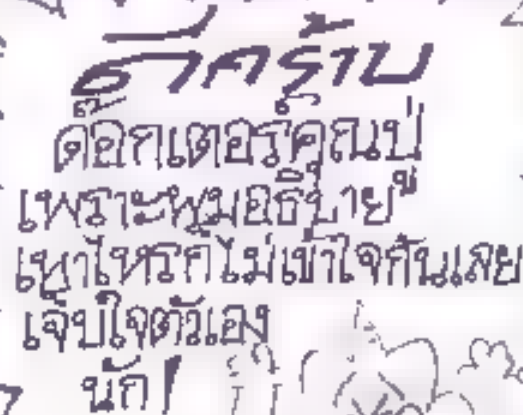 ดีคร้าบ
ด๊อกเตอร์คุณปู่
เพราะผมอธิบาย
เท่าไหร่ก็ไม่เข้าใจกันเลย
เจ็บใจตัวเอง
นัก!